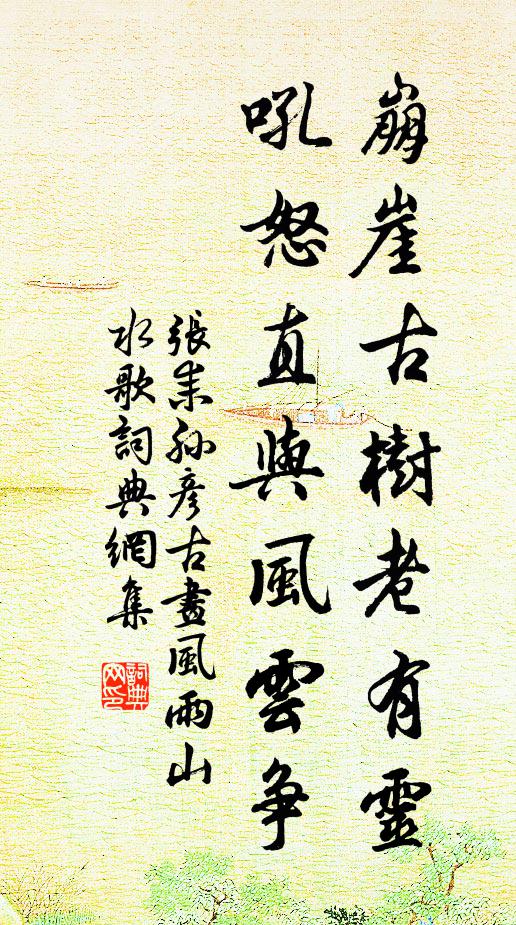 崩崖古樹老有靈
吼怒直與風雲争
張耒孫彥古畫風雨山
水歌詞典網集
詞典
网印